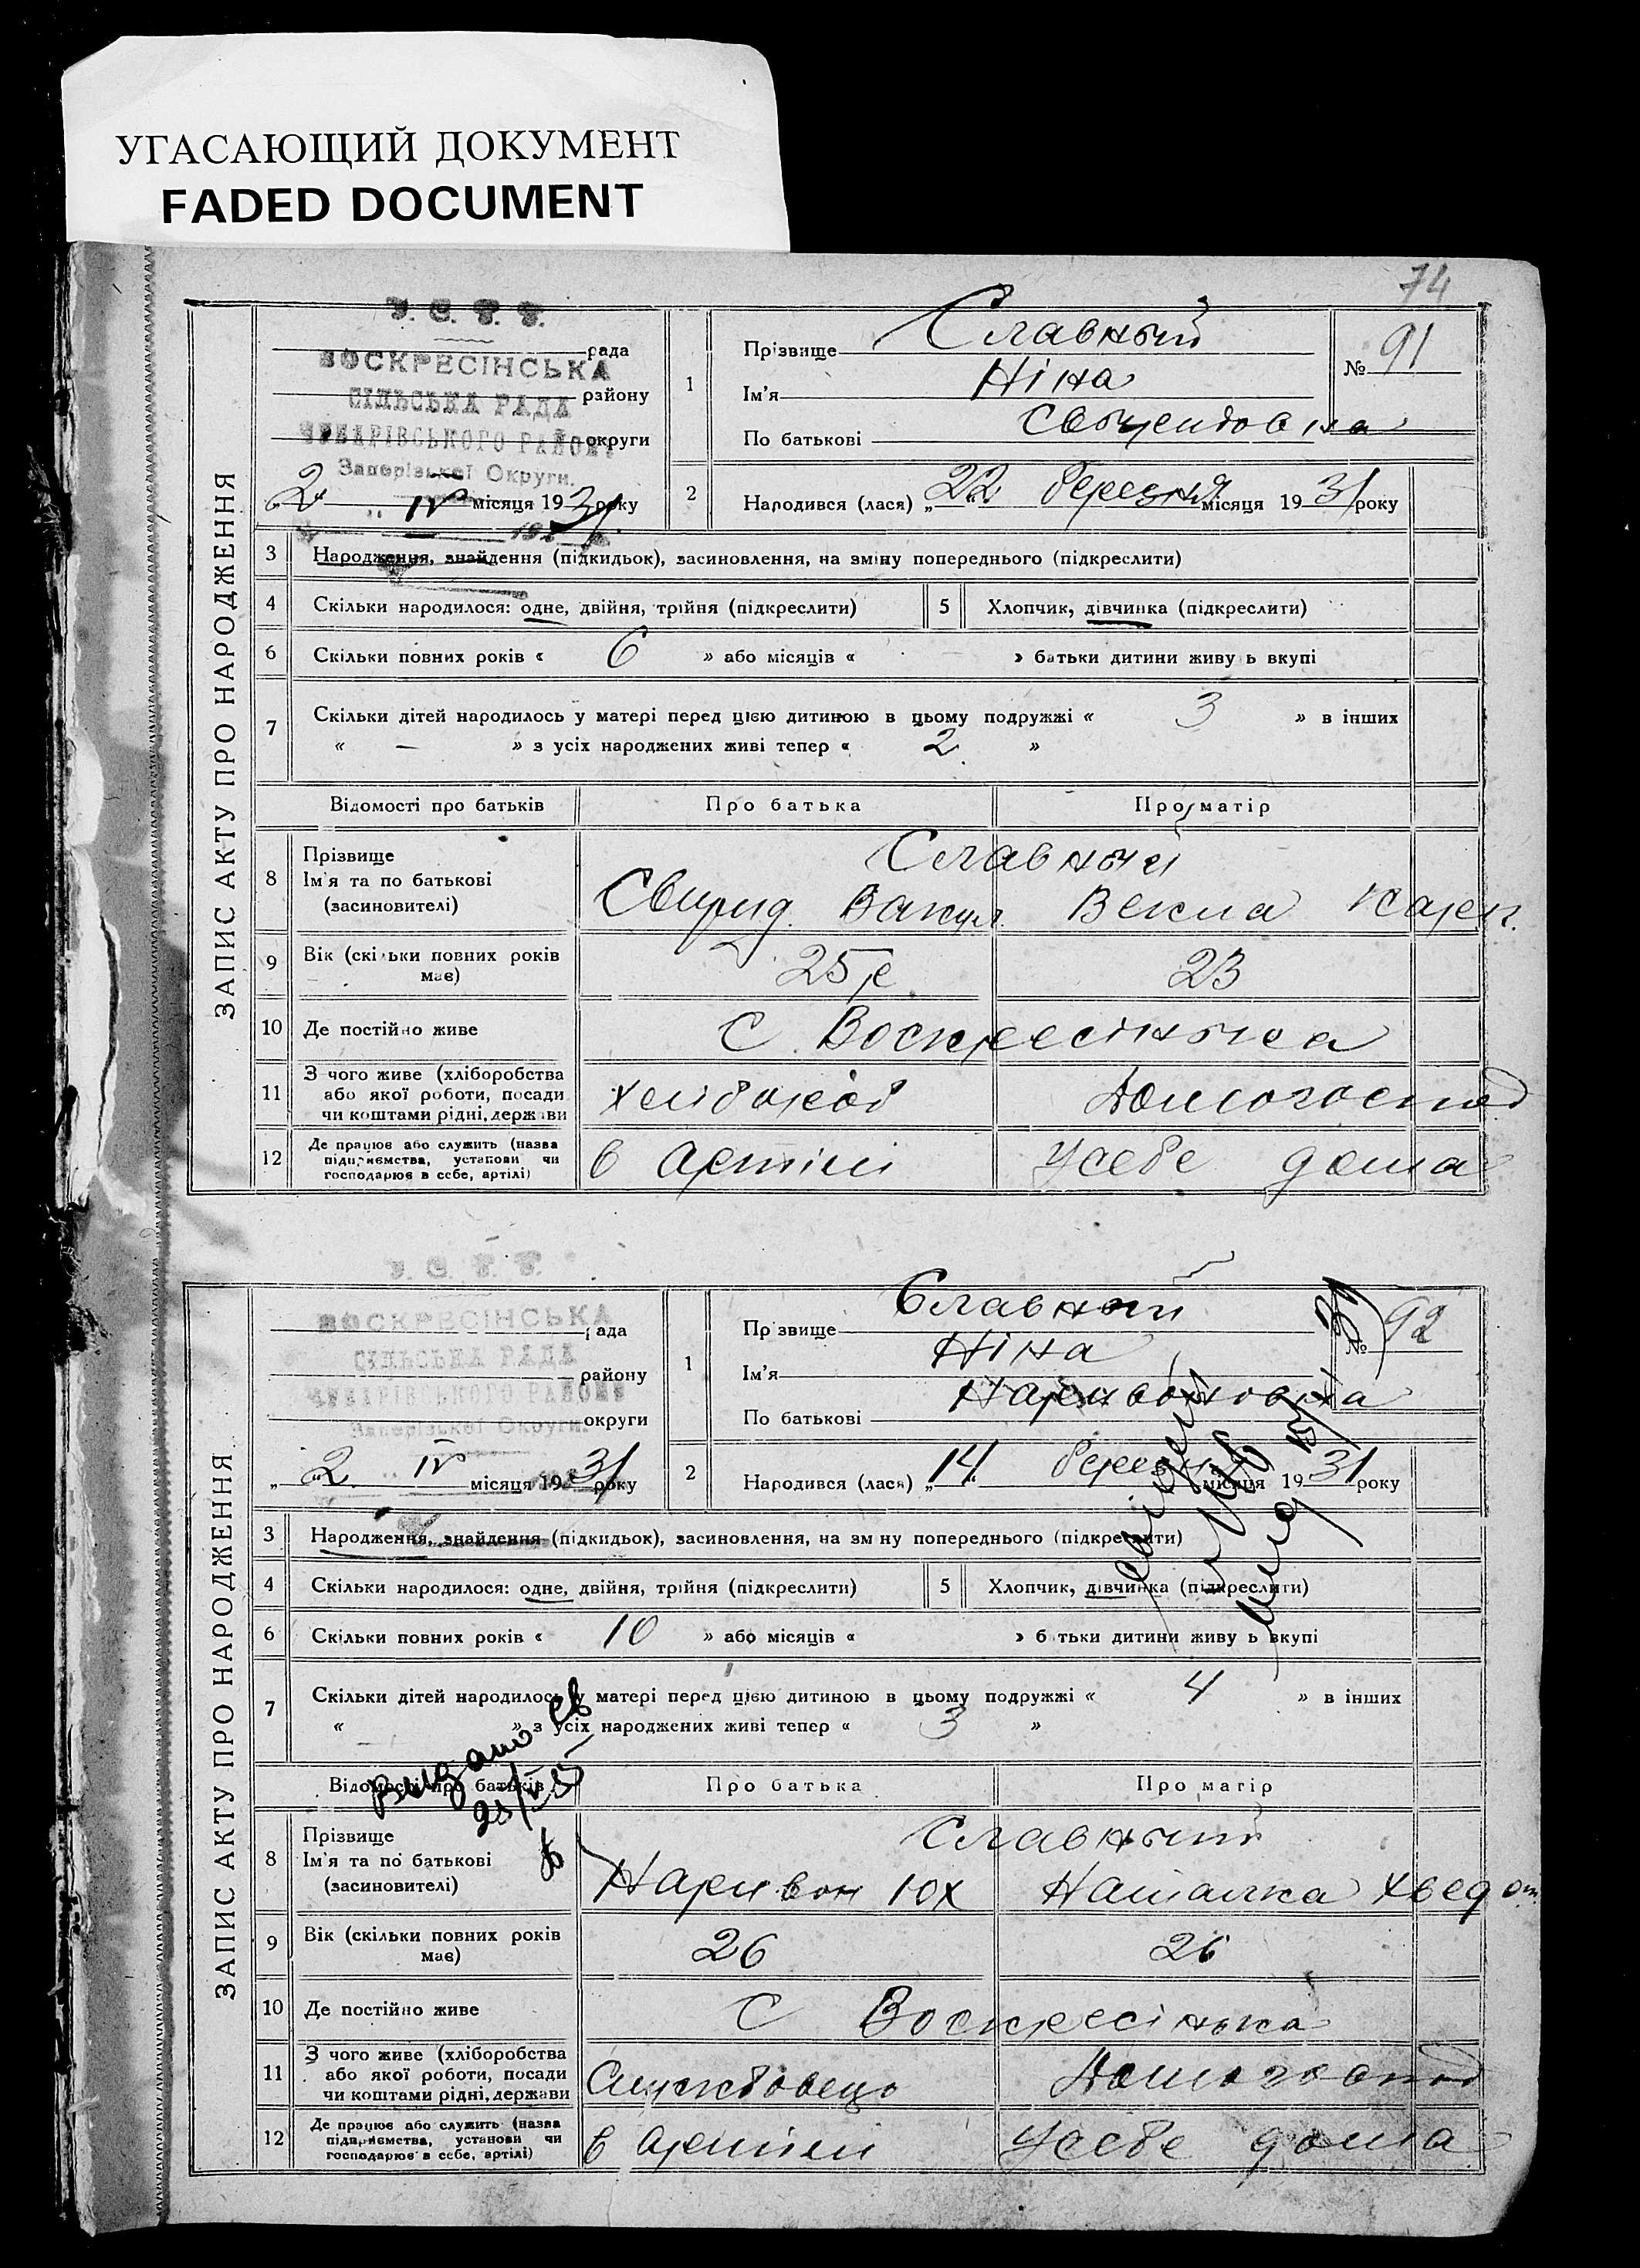 УГАСАЮЩИЙ ДОКУМЕНТ
FADED DOCUMENT
74
ЗАПИС АКТУ ПРО НАРОДЖЕННЯ
У. С. Р. Р.
рада
ВОСКРЕСІНСЬКА
району
СІЛЬСЬКА РАДА
округи
ЧУБАРІВСЬКОГО РАЙОНУ
Запорізької Округи.
„2 IV місяця 1931 року
1
Прізвище Славный
Ім'я Ніна
По батькові
№ 91
2
Народився (лася) „22 березня місяця 1931 року
3 Народження, знайдення (підкидьок), засиновлення, на зміну попереднього (підкреслити)
4 Скільки народилося: одне, двійня, трійня (підкреслити) 5 Хлопчик, дівчинка (підкреслити)
6 Скільки повних років « 6 » або місяців « » батьки дитини живу ь вкупі
7 Скільки дітей народилось у матері перед цією дитиною в цьому подружжі « 3 » в інших
« — » з усіх народжених живі тепер « 2 »
Відомості про батьків Про батька Про матір
8 Прізвище
Ім'я та по батькові
(засиновителі)
Славный
Свирид. Вакул. Векла Карп.
9 Вік (скільки повних років
має)
25 р 23
10 Де постійно живе С Воскресінька
11 З чого живе (хліборобства
або якої роботи, посади
чи коштами рідні, держави
хлібороб Домогоспод
12 Де працює або служить (назва
підприємства, установи чи
господарює в себе, артілі)
в артілі У себе дома
ЗАПИС АКТУ ПРО НАРОДЖЕННЯ
У. С. Р. Р.
рада
ВОСКРЕСІНСЬКА
району
СІЛЬСЬКА РАДА
округи
ЧУБАРІВСЬКОГО РАЙОНУ
Запорізької Округи.
„2 IV місяця 1931 року
1
Прізвище Славный
Ім'я Ніна
По батькові Наривоновна
№ 92
2
Народився (лася) „14 березня місяця 1931 року
3 Народження, знайдення (підкидьок), засиновлення, на зміну попереднього (підкреслити)
4 Скільки народилося: одне, двійня, трійня (підкреслити) 5 Хлопчик, дівчинка (підкреслити)
6 Скільки повних років « 10 » або місяців « » батьки дитини живу ь вкупі
7 Скільки дітей народилось у матері перед цією дитиною в цьому подружжі « 4 » в інших
« — » з усіх народжених живі тепер « 3 »
Видано св
Відомості про батьків Про батька Про матір
8 Прізвище
Ім'я та по батькові
(засиновителі)
Славный
Наривон Юх Наталка Хведот.
9 Вік (скільки повних років
має)
26 26
10 Де постійно живе С Воскресінька
11 З чого живе (хліборобства
або якої роботи, посади
чи коштами рідні, держави
Службовець Домогоспод
12 Де працює або служить (назва
підприємства, установи чи
господарює в себе, артілі)
в артілі У себе дома